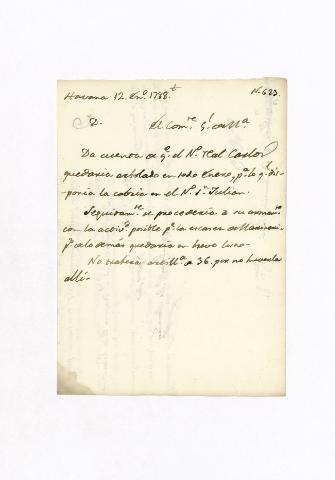 Havana 12. En.º 1788. N. 623.
D. El Com.te G.l de M.a
Da cuenta de q.e el N.º Real Carlos
quedaria arbolado en todo Enero, p.a lo q.l dis-
-ponia la cabria en el N.º S.n Julian.
Seguidam.te se procederia a su armam.to
con la activ.d posible p.r la escasez de Marineria
p.s de lo demás quedaria en breve listo-
No traheria artill.a de 36. por no haverla
alli-